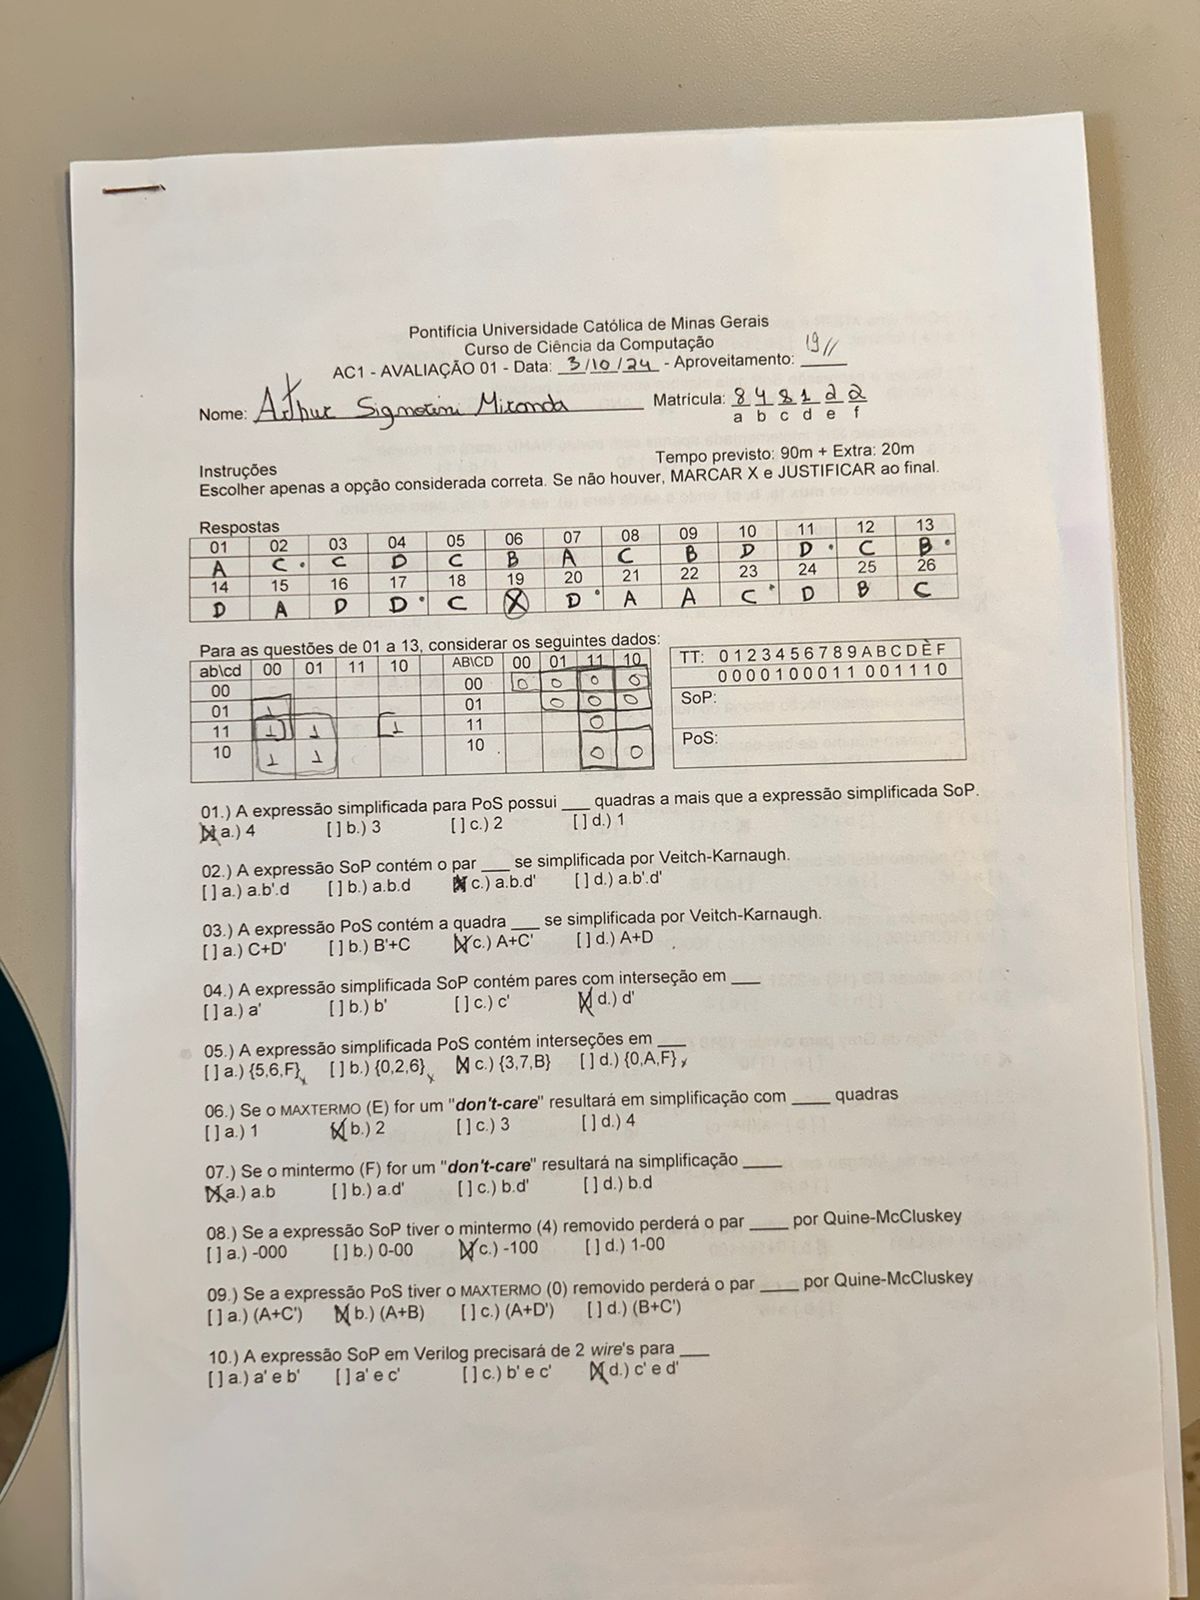 Pontifícia Universidade Católica de Minas Gerais
Curso de Ciência da Computação
AC1 - AVALIAÇÃO 01 - Data: 3/10/24 - Aproveitamento: 19//
Nome: Arthur Signorini Miranda Matrícula: 8 4 8 1 2 2
a b c d e f
Instruções Tempo previsto: 90m + Extra: 20m
Escolher apenas a opção considerada correta. Se não houver, MARCAR X e JUSTIFICAR ao final.
Respostas
01 02 03 04 05 06 07 08 09 10 11 12 13
A C C D C B A C B D D C B
14 15 16 17 18 19 20 21 22 23 24 25 26
D A D D C X D A A C D B C
Para as questões de 01 a 13, considerar os seguintes dados:
ab\cd 00 01 11 10 AB\CD 00 01 11 10 TT: 0 1 2 3 4 5 6 7 8 9 A B C D E F
00 00 0 0 0 0 0 0 0 0 1 0 0 0 1 1 0 0 1 1 1 0
01 1 01 0 0 0 SoP:
11 1 1 1 11 0
10 1 1 10 0 0 PoS:
01.) A expressão simplificada para PoS possui ___ quadras a mais que a expressão simplificada SoP.
[X] a.) 4 [ ] b.) 3 [ ] c.) 2 [ ] d.) 1
02.) A expressão SoP contém o par ___ se simplificada por Veitch-Karnaugh.
[ ] a.) a.b'.d [ ] b.) a.b.d [X] c.) a.b.d' [ ] d.) a.b'.d'
03.) A expressão PoS contém a quadra ___ se simplificada por Veitch-Karnaugh.
[ ] a.) C+D' [ ] b.) B'+C [X] c.) A+C' [ ] d.) A+D
04.) A expressão simplificada SoP contém pares com interseção em ___
[ ] a.) a' [ ] b.) b' [ ] c.) c' [X] d.) d'
05.) A expressão simplificada PoS contém interseções em ___
[ ] a.) {5,6,F} x [ ] b.) {0,2,6} x [X] c.) {3,7,B} [ ] d.) {0,A,F} x
06.) Se o MAXTERMO (E) for um "don't-care" resultará em simplificação com ____ quadras
[ ] a.) 1 [X] b.) 2 [ ] c.) 3 [ ] d.) 4
07.) Se o mintermo (F) for um "don't-care" resultará na simplificação ____
[X] a.) a.b [ ] b.) a.d' [ ] c.) b.d' [ ] d.) b.d
08.) Se a expressão SoP tiver o mintermo (4) removido perderá o par ____ por Quine-McCluskey
[ ] a.) -000 [ ] b.) 0-00 [X] c.) -100 [ ] d.) 1-00
09.) Se a expressão PoS tiver o MAXTERMO (0) removido perderá o par ____ por Quine-McCluskey
[ ] a.) (A+C') [X] b.) (A+B) [ ] c.) (A+D') [ ] d.) (B+C')
10.) A expressão SoP em Verilog precisará de 2 wire's para ___
[ ] a.) a' e b' [ ] a' e c' [ ] c.) b' e c' [X] d.) c' e d'